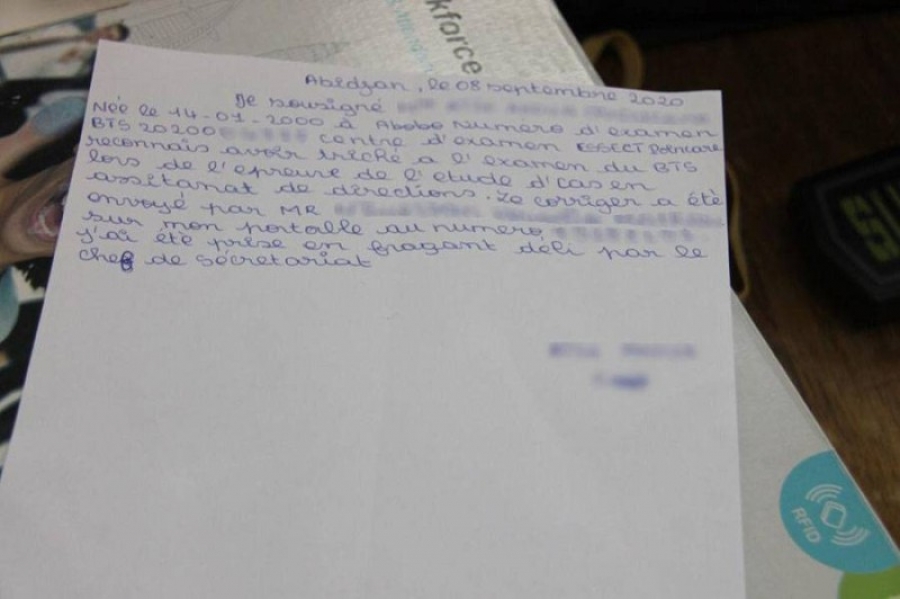 kforce
Abidjan, le 08 septembre 2020
Je sousigné
Née le 14-01-2000 à Abobo Numero d'examen
BTS 20200 centre d'examen ESSECT Poincare
reconnais avoir triché a l'examen du BTS
lors de l'epreuve de l'etude d'cas en
assitanat de directions. Le corriger a été
envoyé par MR
sur mon portable au numero
j'ai été prise en fragant déli par le
chef de sécretariat
RFID